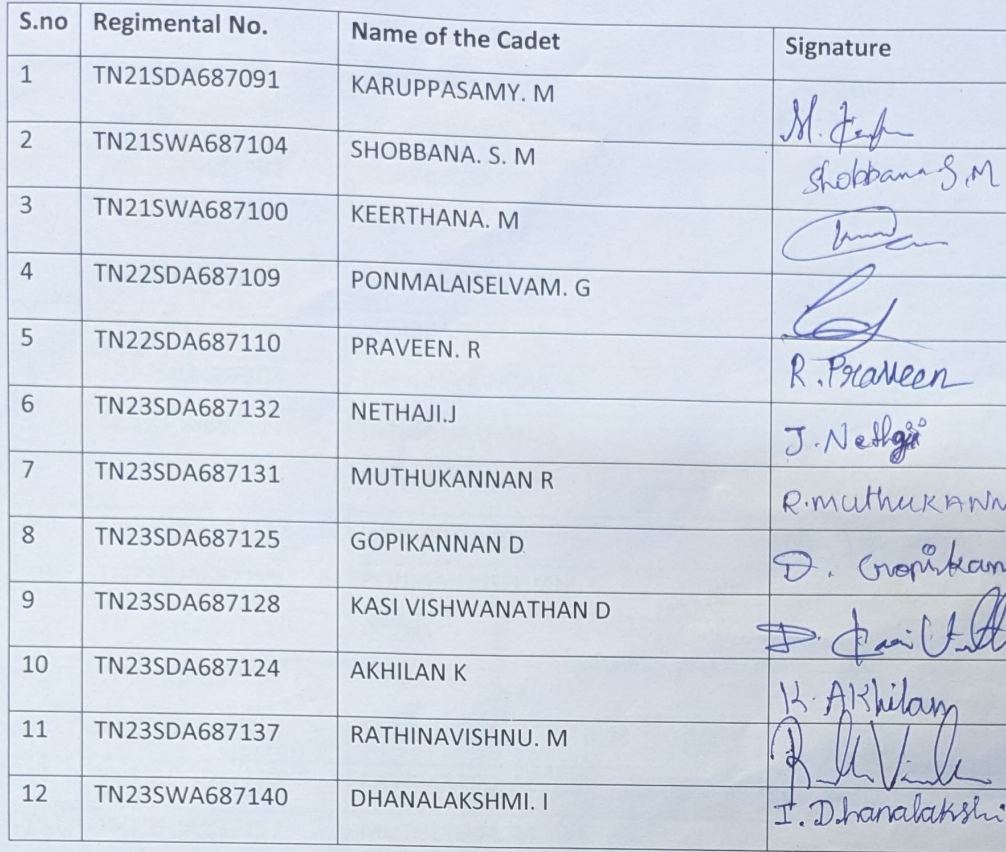 S.no Regimental No. Name of the Cadet Signature
1 TN21SDA687091 KARUPPASAMY. M
2 TN21SWA687104 SHOBBANA. S. M Shobbana S.M
3 TN21SWA687100 KEERTHANA. M
4 TN22SDA687109 PONMALAISELVAM. G
5 TN22SDA687110 PRAVEEN. R R.Praveen
6 TN23SDA687132 NETHAJI.J J.Nethaji
7 TN23SDA687131 MUTHUKANNAN R R.muthuKANN
8 TN23SDA687125 GOPIKANNAN D D. Gopikan
9 TN23SDA687128 KASI VISHWANATHAN D
10 TN23SDA687124 AKHILAN K K.AKhilan
11 TN23SDA687137 RATHINAVISHNU. M
12 TN23SWA687140 DHANALAKSHMI. I I.Dhanalakshi